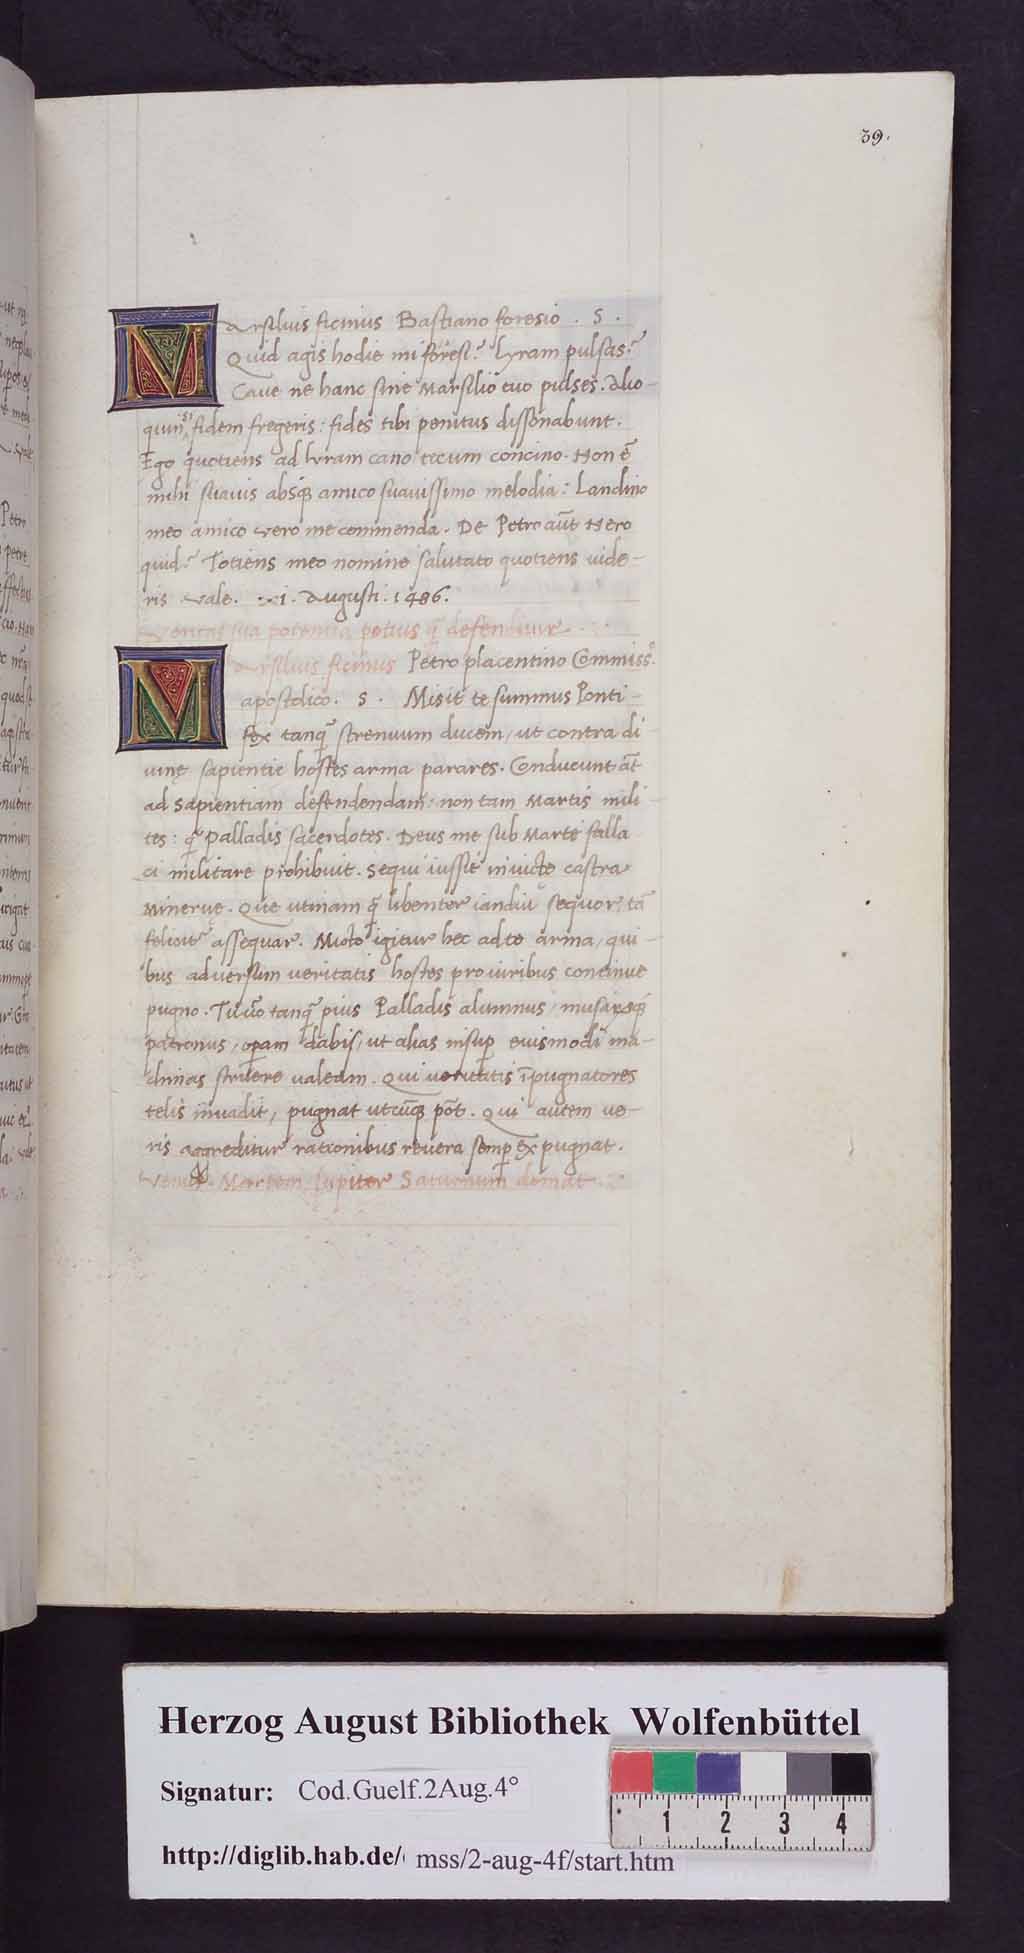 39.
Marsilius ficinus Bastiano foresio . S .
Quid agis hodie mi foresi? Lyram pulsas?
Cave ne hanc sine Marsilio tuo pulses. Alio-
quin si fidem fregeris: fides tibi penitus dissonabunt.
Ego quotiens ad lyram cano tecum concino. Non ē
mihi suavis absq; amico suavissimo melodia: Landino
meo amico vero me commenda. De Petro aūt Nero
quid? Totiens meo nomine salutato quotiens uide-
ris vale. xi. Augusti. 1486.
Veritas sua potentia potius q̄ defenditur
Marsilius ficinus Petro placentino Commiss.
apostolico. S . Misit te summus Ponti-
fex tanq̄ strenuum ducem, ut contra di
uinę sapientie hostes arma parares. Conducunt āt
ad sapientiam defendendam: non tam Martis mili-
tes: q̄ Palladis sacerdotes. Deus me sub Marte falla
ci militare prohibuit. Sequi iussit invicte castra
Minerue. Que utinam q̄ libenter iandiu sequor, tā
feliciter assequar. Micto igitur hec ad te arma, qui-
bus adversum veritatis hostes pro viribus continue
pugno. Tu vo tanq̄ pius Palladis alumnus, musarq;
patronus, operam dabis, ut alias insup eiusmodi ma-
chinas struere valeam. Qui veritatis īpugnatores
telis invadit, pugnat utcūq; pōt. Qui autem ve-
ris aggreditur rationibus revera semp expugnat.
Venus Martem, Iupiter Saturnum domat
Herzog August Bibliothek Wolfenbüttel
Signatur: Cod.Guelf.2Aug.4°
1 2 3 4
http://diglib.hab.de/ mss/2-aug-4f/start.htm